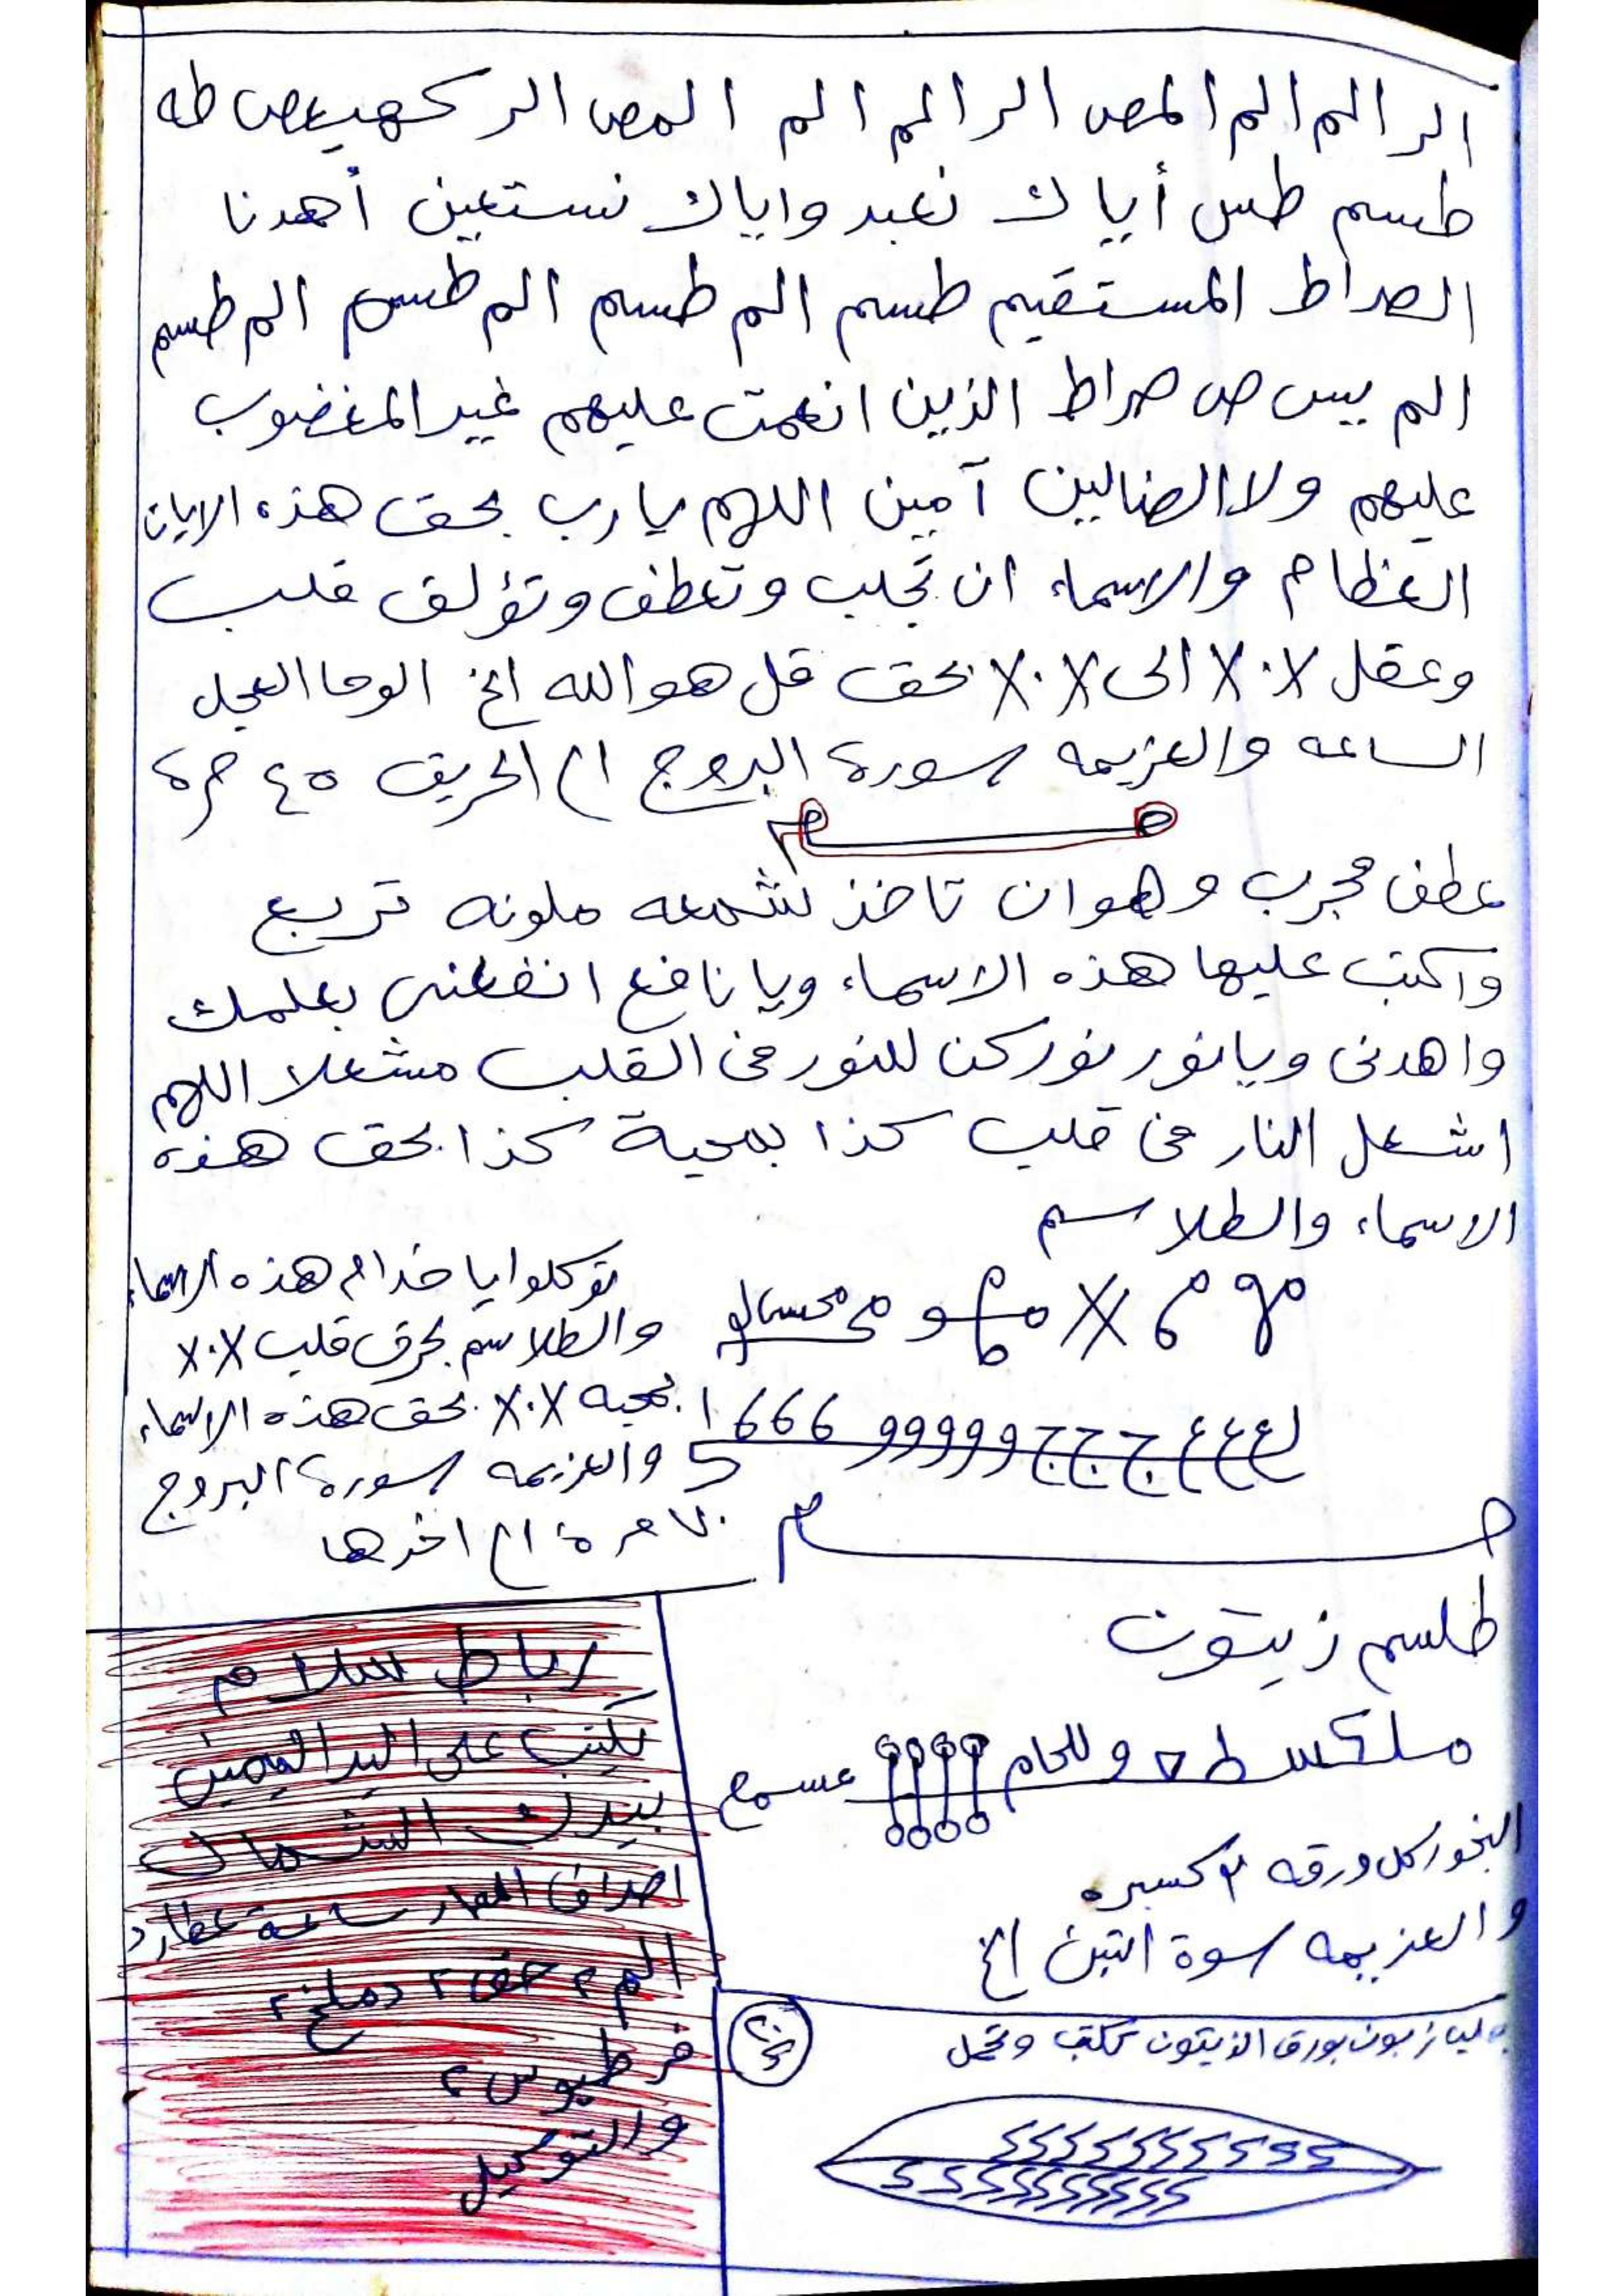 الر الم الم المص الر الم الم المص الر كهيعص طه
طسم طس أياك نعبد واياك نستعين أهدنا
الصراط المستقيم طسم الم طسم الم طس الم طسم
الم يس ص صراط الذين انعمت عليهم غير المغضوب
عليهم ولا الضالين آمين اللهم يارب بحق هذه الايات
العظام والاسماء ان تجلب وتعطف وتؤلف قلب
وعقل X.X الى X.X بحق قل هو الله الخ الوحا العجل
الساعه والعزيمه سورة البروج الى الحريق ٤٥ مرة
عطف مجرب وهو ان تاخذ شمعه ملونه تربيع
واكتب عليها هذه الاسماء ويا نافع انفعنى بعلمك
واهدنى ويانور نور كن للنور فى القلب مشعلا اللهم
اشعل النار فى قلب كذا بمحبة كذا بحق هذه
الاسماء والطلاسم
توكلوا ياخدام هذه الاسماء
والطلاسم بحرق قلب X.X
بمحبه X.X بحق هذه الاسماء
والعزيمه سورة البروج
مرة الى اخرها
طلسم زيتون
البخور كل ورقه كسبره
والعزيمه سوة التين الخ
بورق الزيتون تكتب وتحمل
رباط سلام
يكتب على اليد اليمين
بيدك الشمال
ساعة عطارد
الم ٢
والتوكيل